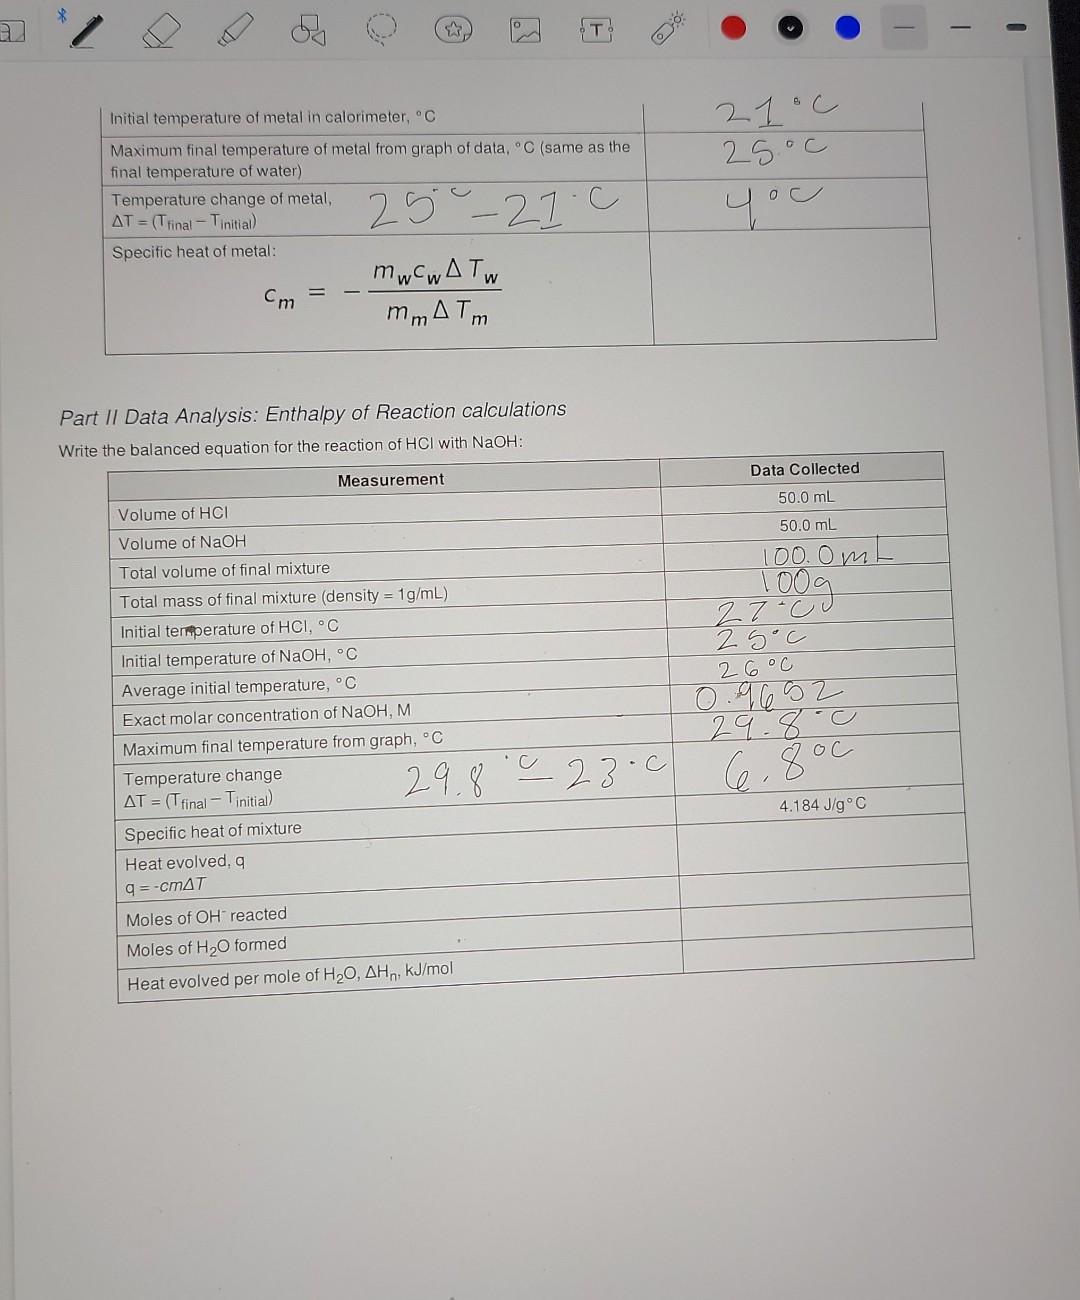 T
Initial temperature of metal in calorimeter, °C
21°C
Maximum final temperature of metal from graph of data, °C (same as the
final temperature of water)
25.°C
Temperature change of metal,
ΔT = (Tfinal – Tinitial)
25°C – 21°C
4°C
Specific heat of metal:
cm = – mwcwΔTw
mmΔTm
Part II Data Analysis: Enthalpy of Reaction calculations
Write the balanced equation for the reaction of HCl with NaOH:
Measurement Data Collected
Volume of HCl 50.0 mL
Volume of NaOH 50.0 mL
Total volume of final mixture 100.0mL
Total mass of final mixture (density = 1g/mL) 100g
Initial temperature of HCl, °C 27°C
Initial temperature of NaOH, °C 25°C
Average initial temperature, °C 26°C
Exact molar concentration of NaOH, M 0.9652
Maximum final temperature from graph, °C 29.8°C
Temperature change
ΔT = (Tfinal – Tinitial)
29.8°C – 23°C
6.8°C
Specific heat of mixture 4.184 J/g°C
Heat evolved, q
q = -cmΔT
Moles of OH⁻ reacted
Moles of H₂O formed
Heat evolved per mole of H₂O, ΔHn, kJ/mol